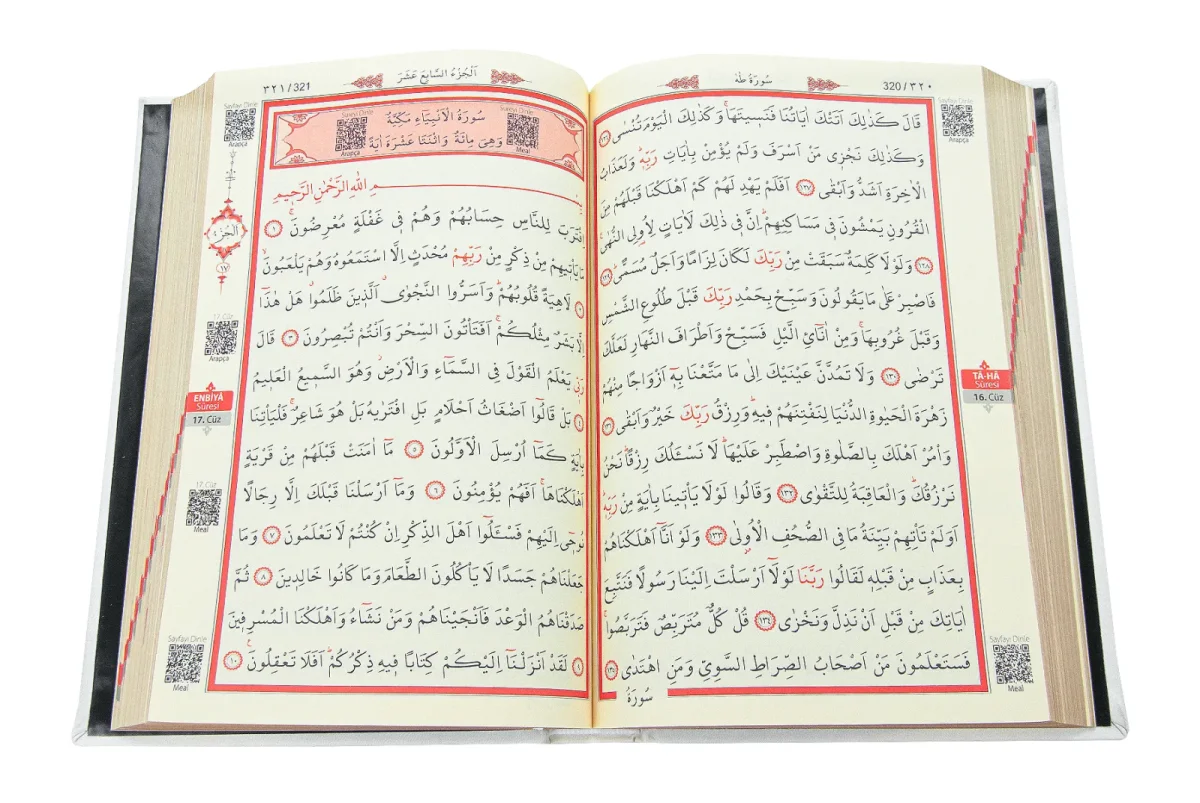 320/٣٢٠
سُورَةُ طٰهٰ
قَالَ كَذٰلِكَ اَتَتْكَ اٰيَاتُنَا فَنَسٖيتَهَاۚ وَكَذٰلِكَ الْيَوْمَ تُنْسٰى ﴿١٢٦﴾
وَكَذٰلِكَ نَجْزٖى مَنْ اَسْرَفَ وَلَمْ يُؤْمِنْ بِاٰيَاتِ رَبِّهٖؕ وَلَعَذَابُ
الْاٰخِرَةِ اَشَدُّ وَاَبْقٰى ﴿١٢٧﴾ اَفَلَمْ يَهْدِ لَهُمْ كَمْ اَهْلَكْنَا قَبْلَهُمْ مِنَ
الْقُرُونِ يَمْشُونَ فٖى مَسَاكِنِهِمْؕ اِنَّ فٖى ذٰلِكَ لَاٰيَاتٍ لِاُولِى النُّهٰى
﴿١٢٨﴾ وَلَوْلَا كَلِمَةٌ سَبَقَتْ مِنْ رَبِّكَ لَكَانَ لِزَامًا وَاَجَلٌ مُسَمًّى ﴿١٢٩﴾
فَاصْبِرْ عَلٰى مَا يَقُولُونَ وَسَبِّحْ بِحَمْدِ رَبِّكَ قَبْلَ طُلُوعِ الشَّمْسِ
وَقَبْلَ غُرُوبِهَاۚ وَمِنْ اٰنَآئِ الَّيْلِ فَسَبِّحْ وَاَطْرَافَ النَّهَارِ لَعَلَّكَ
تَرْضٰى ﴿١٣٠﴾ وَلَا تَمُدَّنَّ عَيْنَيْكَ اِلٰى مَا مَتَّعْنَا بِهٖٓ اَزْوَاجًا مِنْهُمْ
زَهْرَةَ الْحَيٰوةِ الدُّنْيَا لِنَفْتِنَهُمْ فٖيهِؕ وَرِزْقُ رَبِّكَ خَيْرٌ وَاَبْقٰى ﴿١٣١﴾
وَأْمُرْ اَهْلَكَ بِالصَّلٰوةِ وَاصْطَبِرْ عَلَيْهَاؕ لَا نَسْـَٔلُكَ رِزْقًاؕ نَحْنُ
نَرْزُقُكَؕ وَالْعَاقِبَةُ لِلتَّقْوٰى ﴿١٣٢﴾ وَقَالُوا لَوْلَا يَأْتٖينَا بِاٰيَةٍ مِنْ رَبِّهٖؕ
اَوَلَمْ تَأْتِهِمْ بَيِّنَةُ مَا فِى الصُّحُفِ الْاُولٰى ﴿١٣٣﴾ وَلَوْ اَنَّٓا اَهْلَكْنَاهُمْ
بِعَذَابٍ مِنْ قَبْلِهٖ لَقَالُوا رَبَّنَا لَوْلَٓا اَرْسَلْتَ اِلَيْنَا رَسُولًا فَنَتَّبِعَ
اٰيَاتِكَ مِنْ قَبْلِ اَنْ نَذِلَّ وَنَخْزٰى ﴿١٣٤﴾ قُلْ كُلٌّ مُتَرَبِّصٌ فَتَرَبَّصُواۚ
فَسَتَعْلَمُونَ مَنْ اَصْحَابُ الصِّرَاطِ السَّوِيِّ وَمَنِ اهْتَدٰى ﴿١٣٥﴾
سُورَةُ
Sayfayı Dinle
Arapça
TÂ-HÂ
Sûresi
16. Cüz
Sayfayı Dinle
Meal
٣٢١/321
اَلْجُزْءُ السَّابِعَ عَشَرَ
سُورَةُ الْاَنْبِيَٓاءِ مَكِّيَّةٌ
وَهِىَ مِائَةٌ وَاثْنَتَا عَشْرَةَ اٰيَةً
Sûreyi Dinle
Meal
Sûreyi Dinle
Arapça
بِسْمِ اللّٰهِ الرَّحْمٰنِ الرَّحٖيمِ
اِقْتَرَبَ لِلنَّاسِ حِسَابُهُمْ وَهُمْ فٖى غَفْلَةٍ مُعْرِضُونَۚ ﴿١﴾
مَا يَأْتٖيهِمْ مِنْ ذِكْرٍ مِنْ رَبِّهِمْ مُحْدَثٍ اِلَّا اسْتَمَعُوهُ وَهُمْ يَلْعَبُونَۙ
﴿٢﴾ لَاهِيَةً قُلُوبُهُمْؕ وَاَسَرُّوا النَّجْوٰىۗ اَلَّذٖينَ ظَلَمُواۗ هَلْ هٰذَٓا
اِلَّا بَشَرٌ مِثْلُكُمْۚ اَفَتَأْتُونَ السِّحْرَ وَاَنْتُمْ تُبْصِرُونَ ﴿٣﴾ قَالَ
رَبّٖى يَعْلَمُ الْقَوْلَ فِى السَّمَٓاءِ وَالْاَرْضِؗ وَهُوَ السَّمٖيعُ الْعَلٖيمُ
﴿٤﴾ بَلْ قَالُٓوا اَضْغَاثُ اَحْلَامٍ بَلِ افْتَرٰيهُ بَلْ هُوَ شَاعِرٌۚ فَلْيَأْتِنَا
بِاٰيَةٍ كَمَٓا اُرْسِلَ الْاَوَّلُونَ ﴿٥﴾ مَٓا اٰمَنَتْ قَبْلَهُمْ مِنْ قَرْيَةٍ
اَهْلَكْنَاهَاۚ اَفَهُمْ يُؤْمِنُونَ ﴿٦﴾ وَمَٓا اَرْسَلْنَا قَبْلَكَ اِلَّا رِجَالًا
نُوحٖٓى اِلَيْهِمْ فَسْـَٔلُٓوا اَهْلَ الذِّكْرِ اِنْ كُنْتُمْ لَا تَعْلَمُونَ ﴿٧﴾ وَمَا
جَعَلْنَاهُمْ جَسَدًا لَا يَأْكُلُونَ الطَّعَامَ وَمَا كَانُوا خَالِدٖينَ ﴿٨﴾ ثُمَّ
صَدَقْنَاهُمُ الْوَعْدَ فَاَنْجَيْنَاهُمْ وَمَنْ نَشَٓاءُ وَاَهْلَكْنَا الْمُسْرِفٖينَ
﴿٩﴾ لَقَدْ اَنْزَلْنَٓا اِلَيْكُمْ كِتَابًا فٖيهِ ذِكْرُكُمْؕ اَفَلَا تَعْقِلُونَۚ ﴿١٠﴾
Sayfayı Dinle
Arapça
اَلْجُزْءُ
١٧
17. Cüz
Arapça
ENBİYÂ
Sûresi
17. Cüz
17. Cüz
Meal
Sayfayı Dinle
Meal